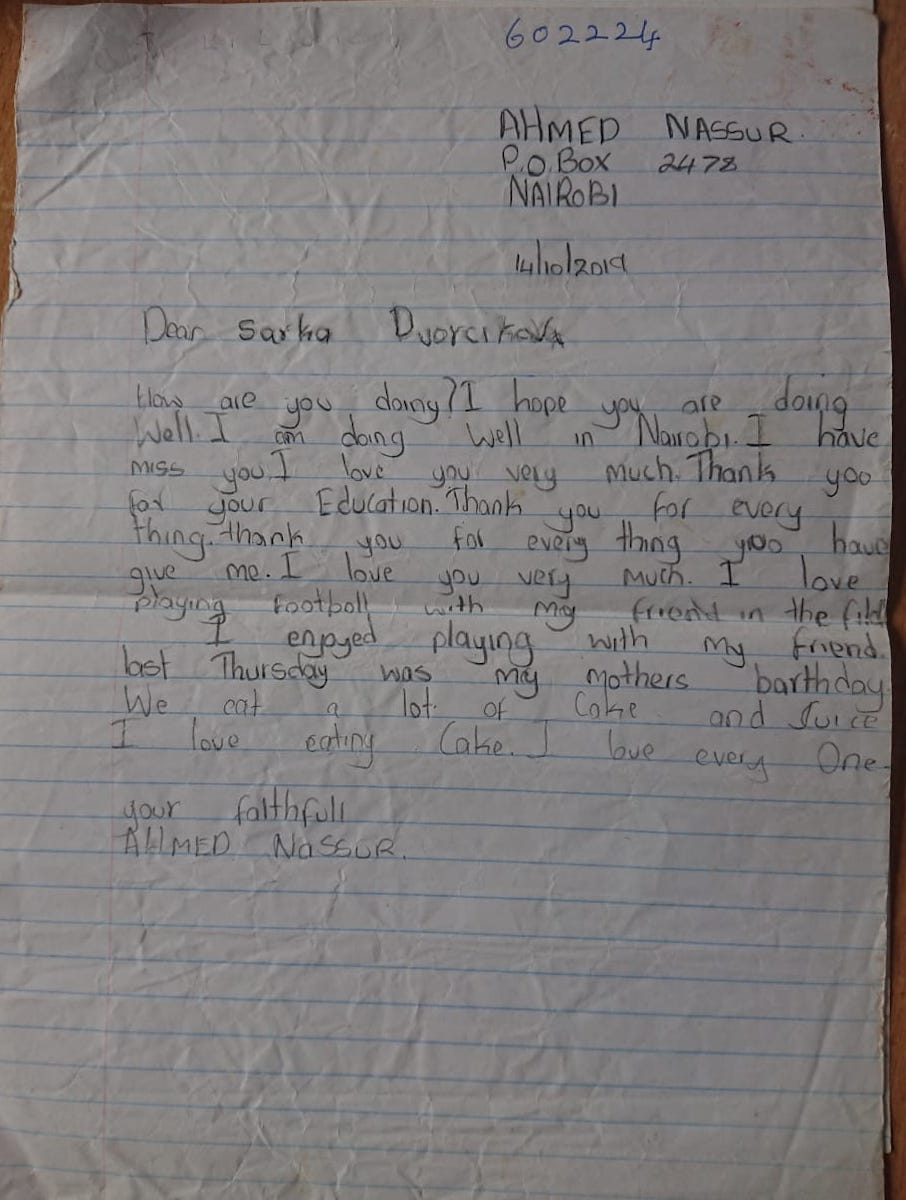 602224
AHMED NASSUR.
P.O.Box 2478
NAIROBI
14/10/2019
Dear Sarka Dvorcikova
How are you doing? I hope you are doing
Well. I am doing Well in Nairobi. I have
miss you. I love you very much. Thank yoo
for your Education. Thank you for every
thing. thank you for every thing yoo have
give me. I love you very much. I love
playing football with my friend in the fild
I enjoyed playing with my friend.
last Thursday was my mothers barthday
We eat a lot of Cake and Juice
I love eating Cake. I love every One
your faithfull
AHMED NASSUR.